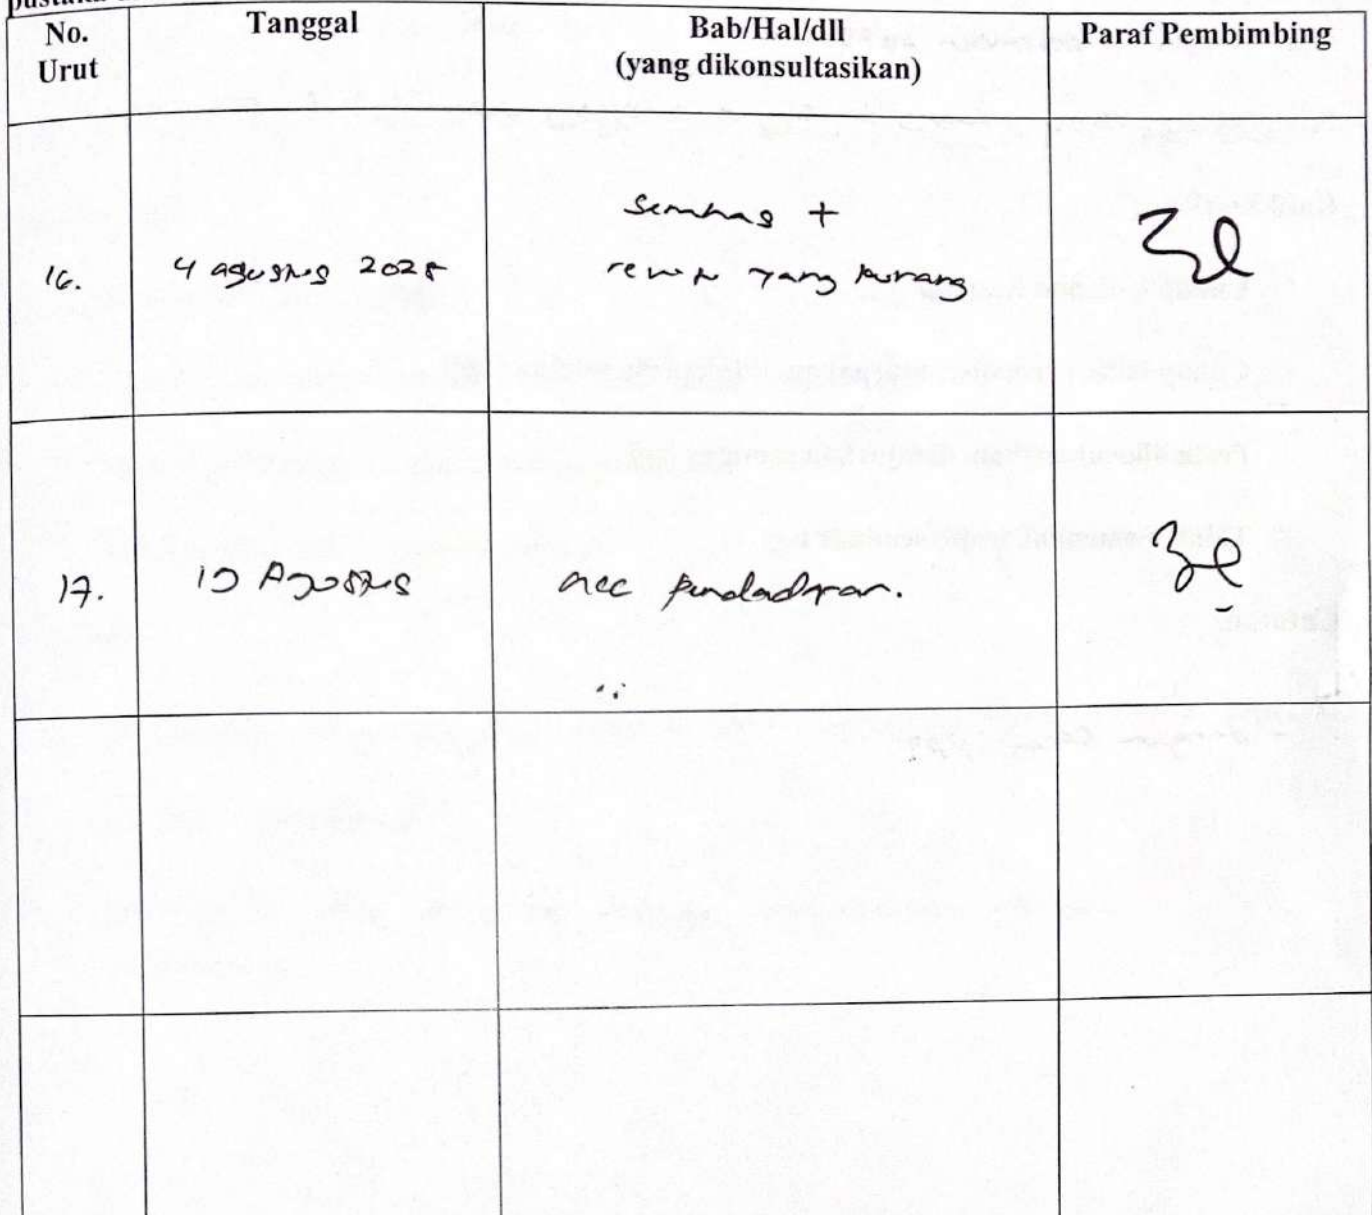 No. Urut
Tanggal
Bab/Hal/dll
(yang dikonsultasikan)
Paraf Pembimbing
16.
4 agustus 2025
semhas +
yang kurang
17.
Agustus
acc pendadaran.